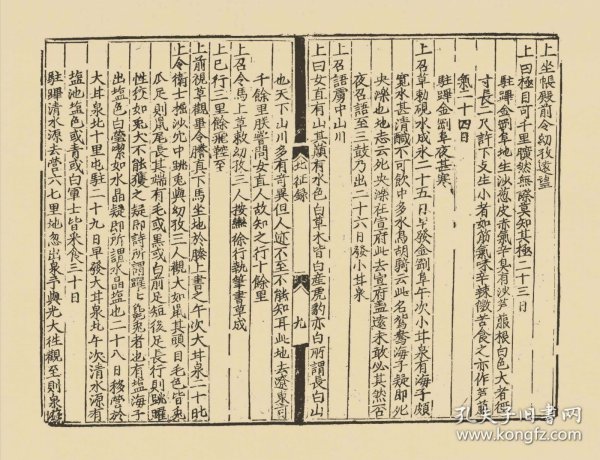 上坐帳殿前令幼孜遠望
上曰極目可千里曠然無際莫知其極二十三日
駐蹕金剛阜地生沙葱皮赤氣辛臭有沙芦菔根白色大者徑
寸長二尺許下支生小者如筯氣味辛辣微苦食之亦作芦菔
氣二十四日
駐蹕金剛阜夜甚寒
上召草敕硯水成氷二十五日早發金剛阜午次小甘泉有海子頗
寬水甚清鹹不可飲中多水鳥胡騎云此名鴛鴦海子疑即死
央濼也地志云死央濼在宣府此去宣府盖遠未敢必其然否
夜召語至三鼓乃出二十六日發小甘泉
上召語虜中山川
上曰女直有山其巔有水色白草木皆白産虎豹亦白所謂長白山
北征錄
九
也天下山川多有竒異但人迹不至不能知耳此地去遼東可
千餘里朕嘗問女直人故知之行十餘里
上召令馬上草敕幼孜三人按轡徐行執筆書草成
上已行三里餘飛轡至
上前視草觀畢令謄真下馬坐地於膝上書之午次大甘泉二十七
上令衛士掘沙穴中跳兎與幼孜三人觀大如鼠其頭目毛色皆兎
爪足則鼠尾長其端有毛或黒或白前足短後足長行則跳躍
性狡如兎犬不能獲之疑即詩所謂躍躍毚兎者也有塩海子
出塩色白瑩潔如水晶疑即所謂水晶塩也二十八日移營於
大甘泉北十里屯駐二十九日早發大甘泉北午次清水源有
塩池塩色或青或白軍士皆采食三十日
駐蹕清水源去營六七里地忽出泉予與光大往觀至則泉溢
孔夫子旧书网
www.kongfz.com